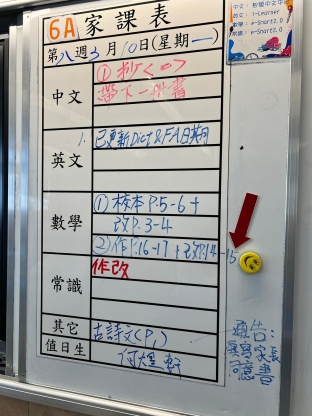 6A 家課表
第八週3月10日(星期一)
中文
① 抄<0>
帶下一冊書
英文
1. 已更新Dict & FA日期
數學
① 校本 P.5-6 +
改 P.3-4
② 作 P.16-17 + 改 P.14-15
常識
作改
其它
古詩文(P1)
值日生
何煜軒
通告:
家長
同意書
i-Learner
e-Smart2.0
e-Smart2.0